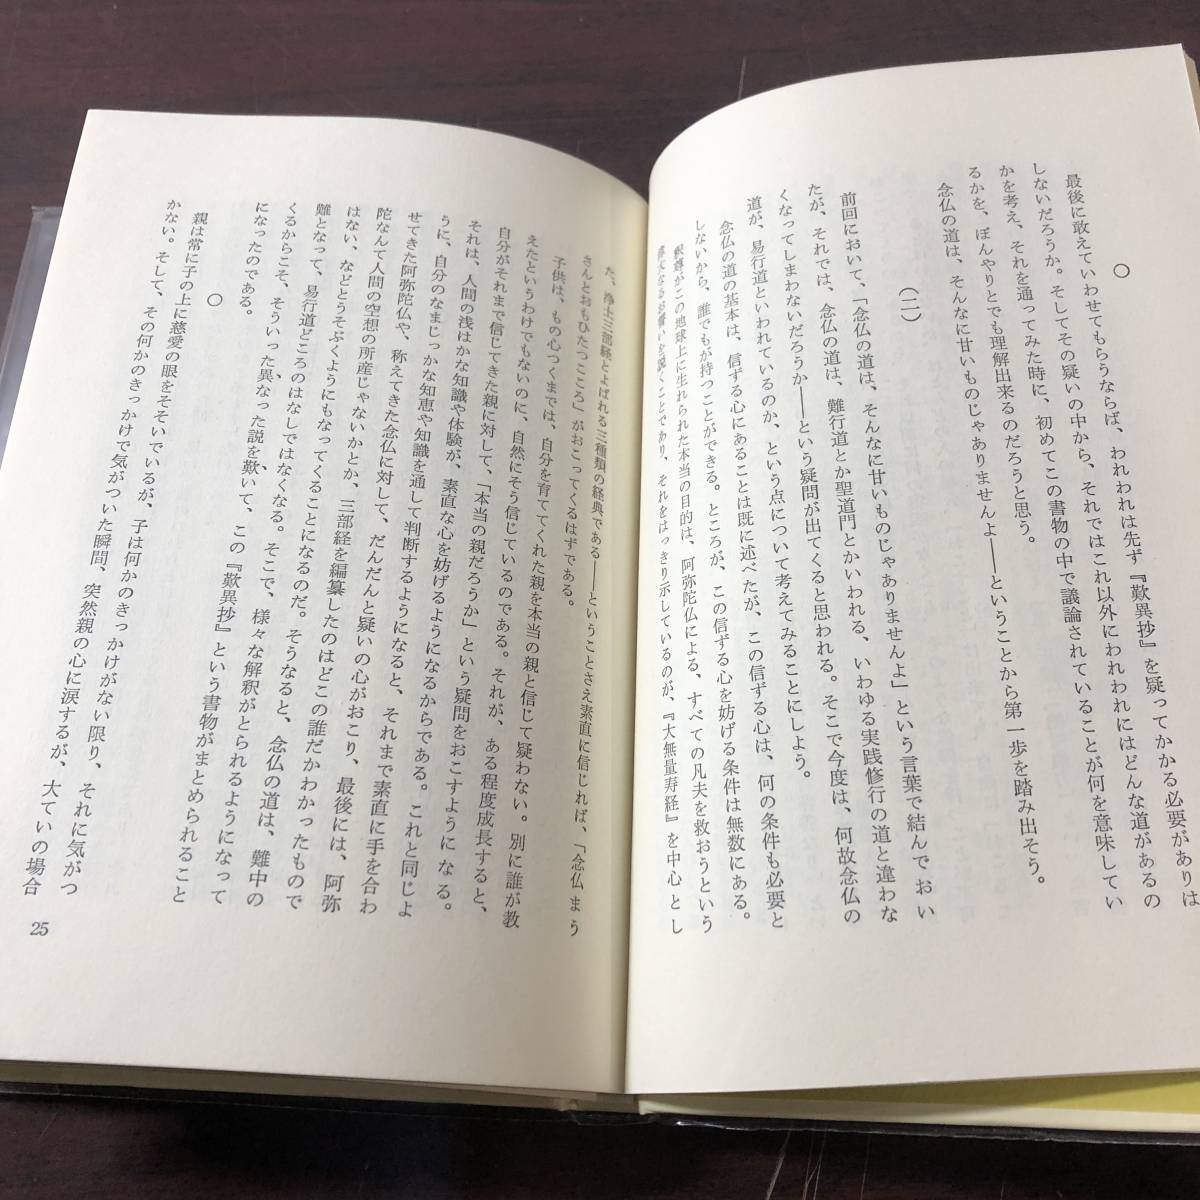 ○
最後に敢えていわせてもらうならば、われわれは先ず『歎異抄』を疑ってかかる必要がありは
しないだろうか。そしてその疑いの中から、それではこれ以外にわれわれにはどんな道があるの
かを考え、それを通ってみた時に、初めてこの書物の中で議論されていることが何を意味してい
るかを、ぼんやりとでも理解出来るのだろうと思う。
念仏の道は、そんなに甘いものじゃありませんよ――ということから第一歩を踏み出そう。
(二)
前回において、「念仏の道は、そんなに甘いものじゃありませんよ」という言葉で結んでおい
たが、それでは、念仏の道は、難行道とか聖道門とかいわれる、いわゆる実践修行の道と違わな
くなってしまわないだろうか――という疑問が出てくると思われる。そこで今度は、何故念仏の
道が、易行道といわれているのか、という点について考えてみることにしよう。
念仏の道の基本は、信ずる心にあることは既に述べたが、この信ずる心は、何の条件も必要と
しないから、誰でもが持つことができる。ところが、この信ずる心を妨げる条件は無数にある。
釈尊がこの地球上に生れられた本当の目的は、阿弥陀仏による、すべての凡夫を救おうという
偉大なるお誓いを説くことであり、それをはっきり示しているのが、『大無量寿経』を中心とし
た、浄土三部経とよばれる三種類の経典である――ということさえ素直に信じれば、「念仏まう
さんとおもひたつこころ」がおこってくるはずである。
子供は、もの心つくまでは、自分を育ててくれた親を本当の親と信じて疑わない。別に誰が教
えたというわけでもないのに、自然にそう信じているのである。それが、ある程度成長すると、
自分がそれまで信じてきた親に対して、「本当の親だろうか」という疑問をおこすようになる。
それは、人間の浅はかな知識や体験が、素直な心を妨げるようになるからである。これと同じよ
うに、自分のなまじっかな知恵や知識を通して判断するようになると、それまで素直に手を合わ
せてきた阿弥陀仏や、称えてきた念仏に対して、だんだんと疑いの心がおこり、最後には、阿弥
陀なんて人間の空想の所産じゃないかとか、三部経を編纂したのはどこの誰だかわかったもので
はない、などとうそぶくようにもなってくることになるのだ。そうなると、念仏の道は、難中の
難となって、易行道どころのはなしではなくなる。そこで、様々な解釈がとられるようになって
くるからこそ、そういった異なった説を歎いて、この『歎異抄』という書物がまとめられること
になったのである。
○
親は常に子の上に慈愛の眼をそそいでいるが、子は何かのきっかけがない限り、それに気がつ
かない。そして、その何かのきっかけで気がついた瞬間、突然親の心に涙するが、大ていの場合
25